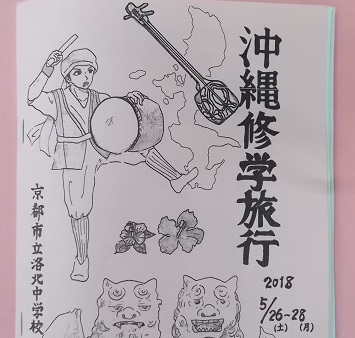 沖縄修学旅行
2018
5/26-28
(土) (月)
京都市立洛北中学校